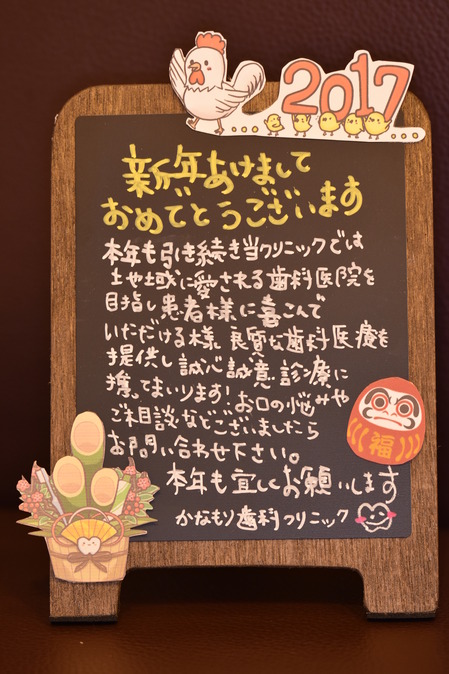 2017
新年あけまして
おめでとうございます
本年も引き続き当クリニックでは
地域に愛される歯科医院を
目指し患者様に喜こんで
いただける様、良質な歯科医療を
提供し誠心誠意診療に
携ってまいります!お口の悩みや
ご相談などございましたら
お問い合わせ下さい。
本年も宜しくお願いします
かなもり歯科クリニック
福